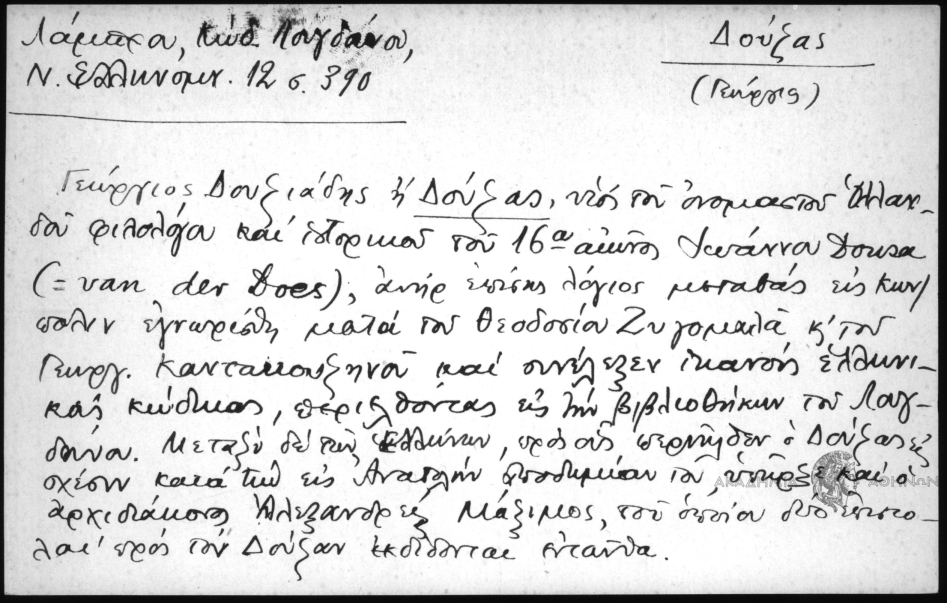 Λάμπρου, Κώδ. Λουγδούνου,
Ν. Ἑλληνομν. 12 σ. 390
Δούζας
(Γεώργιος)
Γεώργιος Δουζιάδης ἤ Δούζας, υἱός τοῦ ὀνομαστοῦ Ὁλλαν-
δοῦ φιλολόγου καί ἱστορικοῦ τοῦ 16ου αἰῶνος Ἰωάννου Dousa
(= van der Does), ἀνήρ ἐπίσης λόγιος μεταβάς εἰς Κων/
πολιν ἐγνωρίσθη μετά τοῦ Θεοδοσίου Ζυγομαλᾶ κ' τοῦ
Γεωργ. Καντακουζηνοῦ καί συνέλεξεν ἱκανούς ἑλληνι-
κούς κώδικας, περιελθόντας εἰς τήν βιβλιοθήκην τοῦ Λουγ-
δούνου. Μεταξύ δέ τῶν Ἑλλήνων, πρός οὕς περιῆλθεν ὁ Δούζας εἰς
σχέσιν κατά τήν εἰς Ἀνατολήν ἀποδημίαν του, ὑπῆρξε καί ὁ
ἀρχιδιάκονος Ἀλεξανδρείας Μάξιμος, τοῦ ὁποίου δύο ἐπιστο-
λαί πρός τόν Δούζαν ἐκδίδονται ἐνταῦθα.
ΑΚΑΔΗΜΙΑ ΑΘΗΝΩΝ